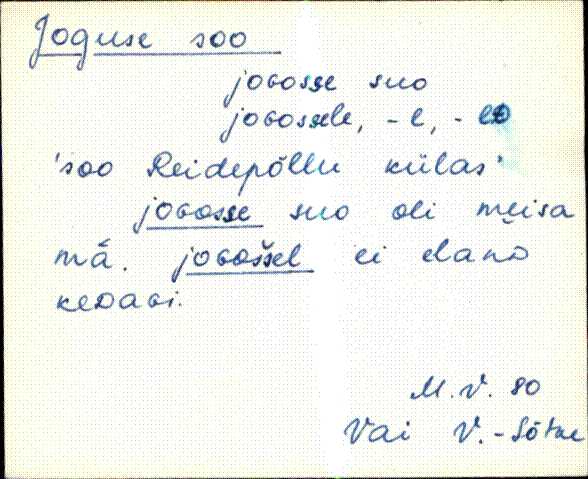 Joguse soo
joGosse suo
joGossele, -l, - lD
'soo Reidepõllu külas'
joGosse suo oli mɛisa
mā. joGoššel ei elanD
keDaGi.
M.V. 80
Vai V.-Sõtke